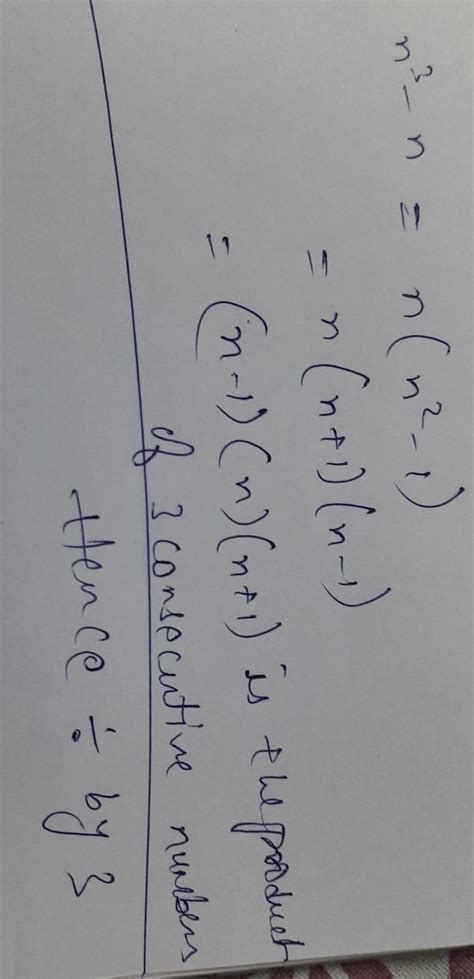 n³ - n = n(n² - 1)
= n(n+1)(n-1)
= (n-1)(n)(n+1) is the product
of 3 consecutive numbers
Hence ÷ by 3